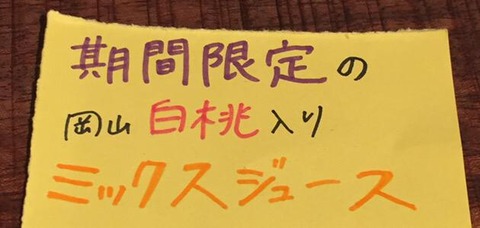 期間限定の
岡山白桃入り
ミックスジュース